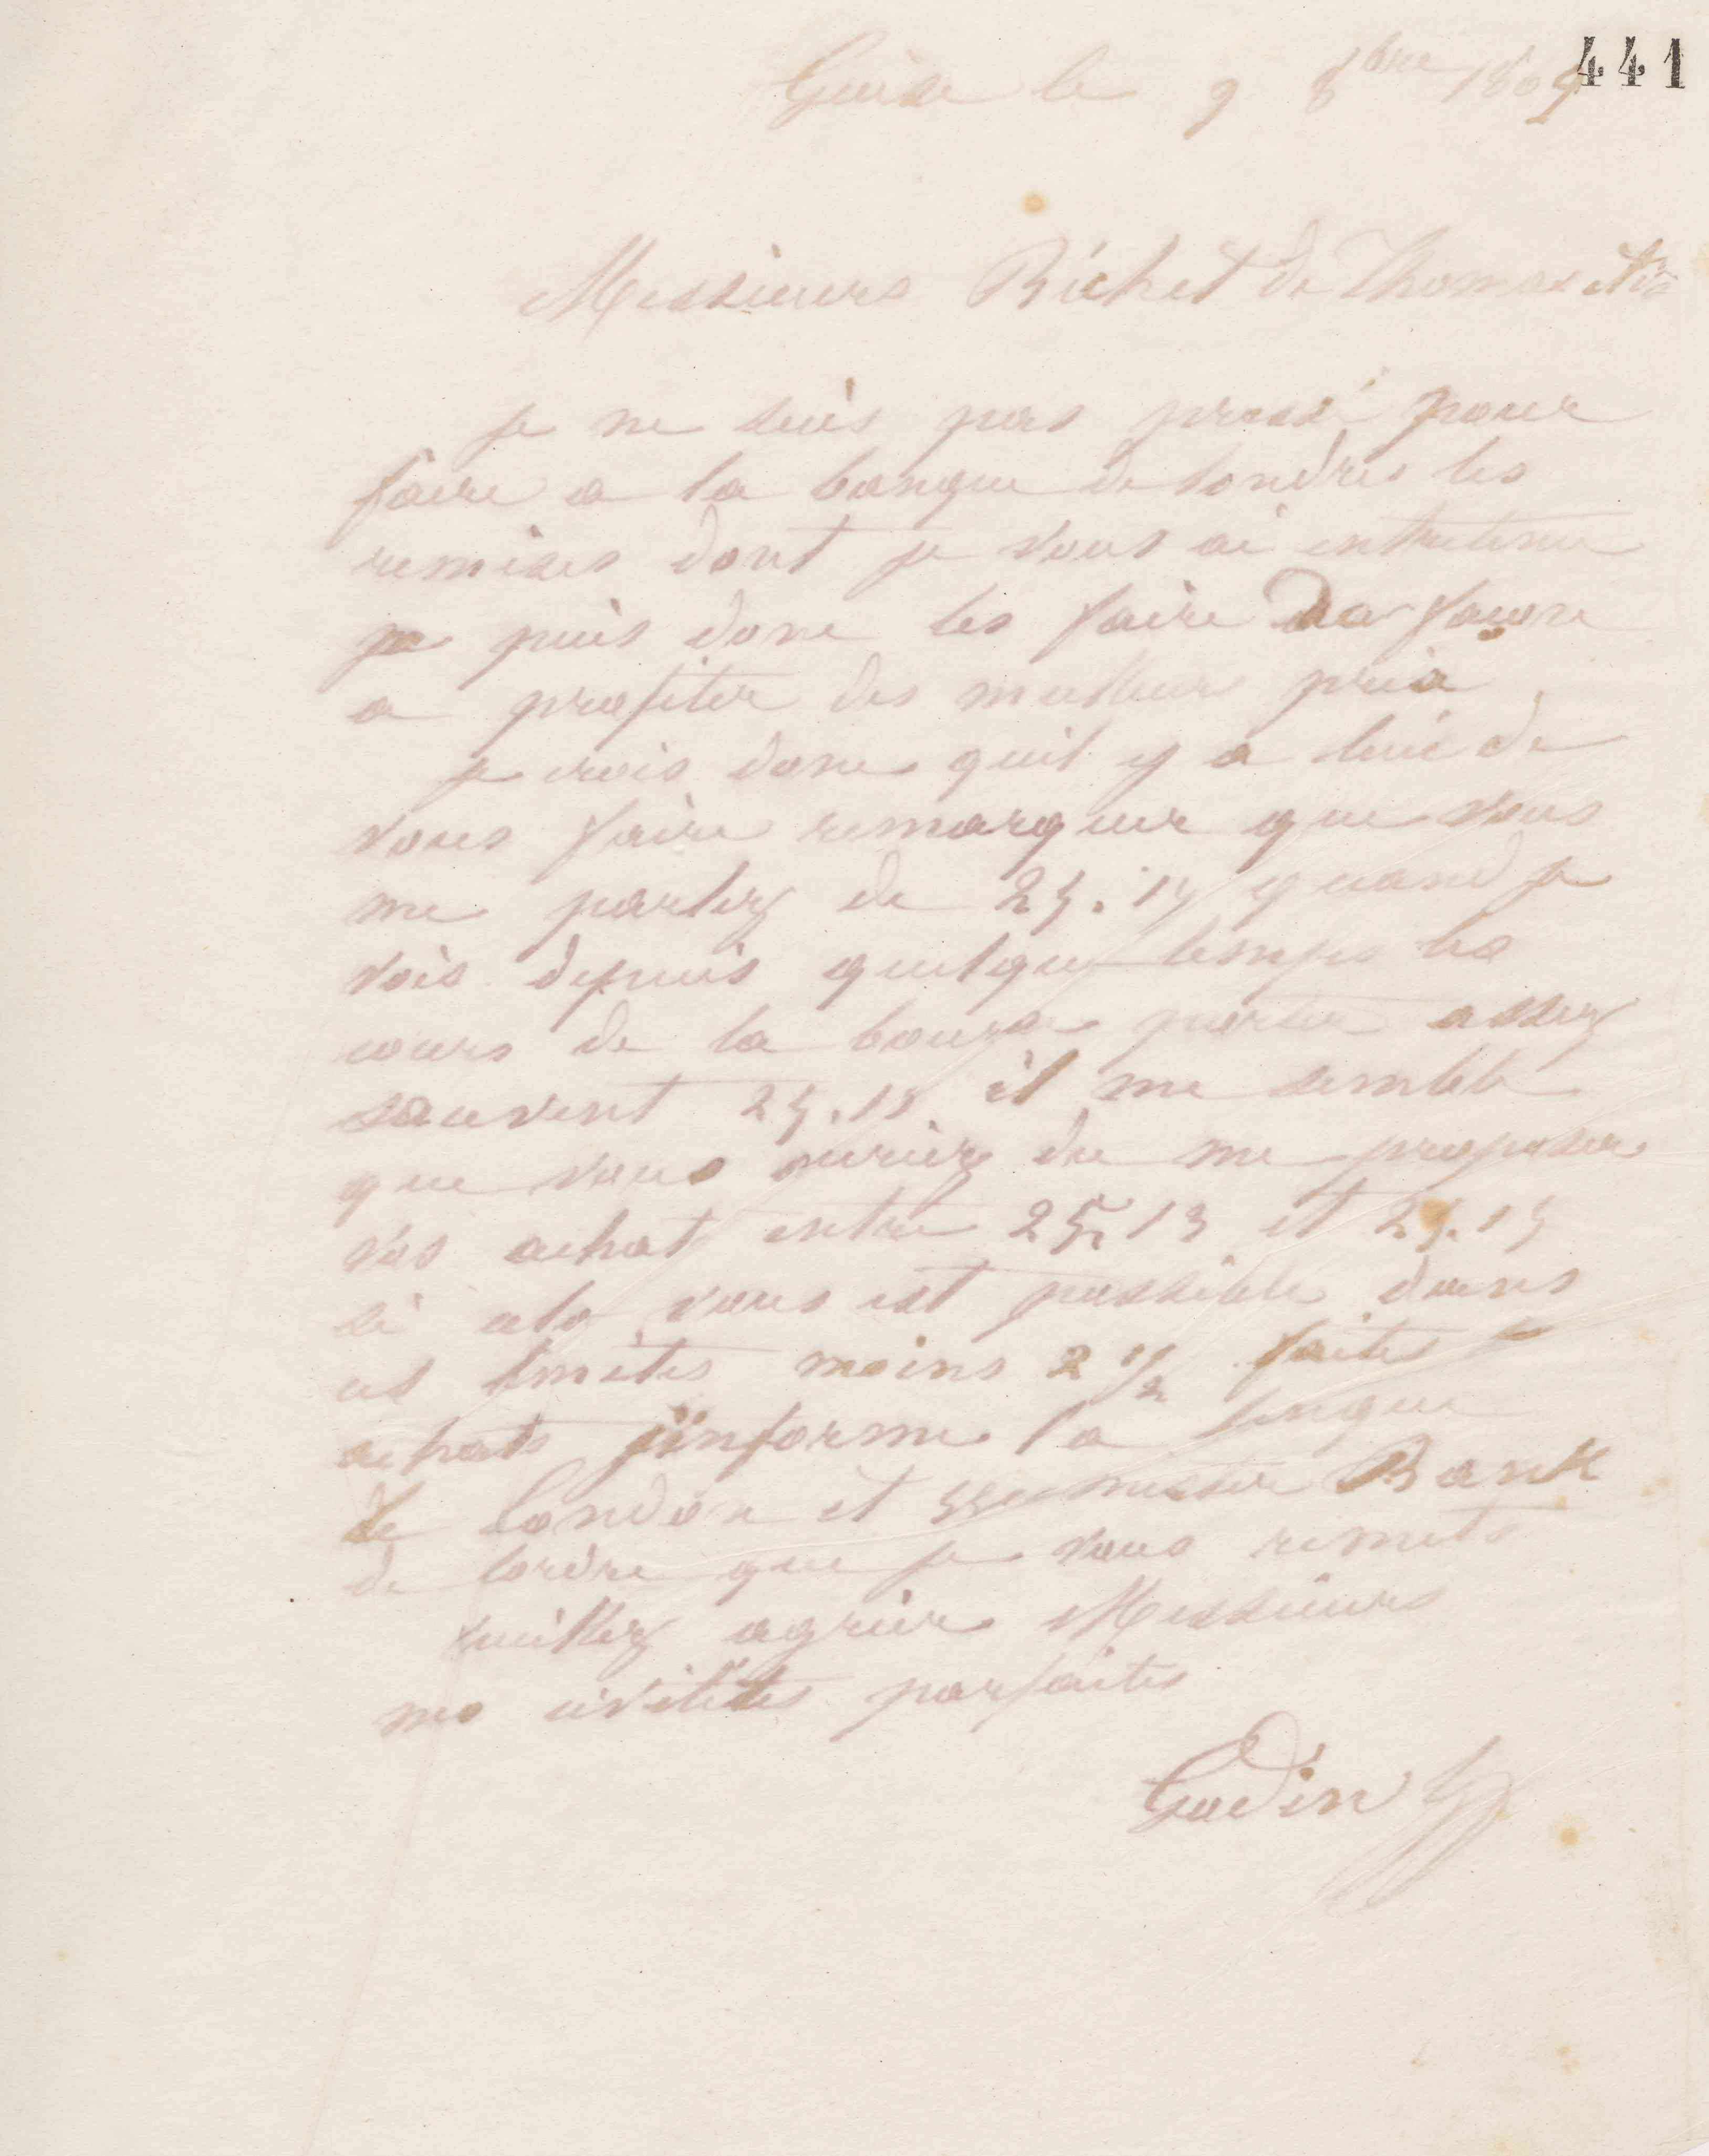 441
Guise le 9 8bre 1869
Messieurs Richet de Thomas et Cie
je ne suis pas pressé pour
faire a la banque de londres les
remises dont je vous ai entretenu
je puis donc les faire de facon
a profiter des meilleur prix
je crois donc quil y a lieu de
vous faire remarquer que vous
me parlez de 25.17 quand je
vois depuis quelque temps les
cours de la bourse porter assez
souvent 25.15 il me semble
que vous auriez du me proposer
vos achat entre 25 13 et 25.15
si cela vous est possible dans
ces limites moins 2 1/2 faites
achats jinforme la banque
de London et Bank
de lordre que je vous remets
veuillez agréer Messieurs
mes civilités parfaites
Godin